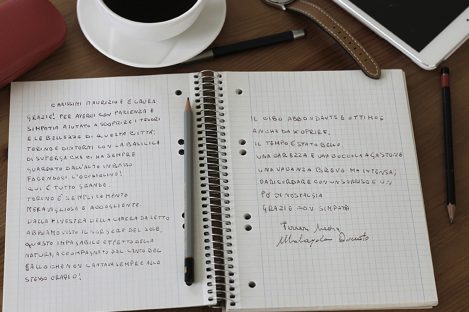 CARISSIMI MAURIZIO E LAURA
GRAZIE! PER AVERCI CON PAZIENZA E
SIMPATIA AIUTATO A SCOPRIRE I TESORI
E LE BELLEZZE DI QUESTA CITTÀ.
TORINO E DINTORNI CON LA BASILICA
DI SUPERGA CHE CI HA SEMPRE
GUARDATO DALL'ALTO
FACENDOCI L'OCCHIOLINO!
QUI È TUTTO GRANDE.
TORINO È SEMPLICEMENTE
MERAVIGLIOSA E ACCOGLIENTE.
DALLA FINESTRA DELLA CAMERA DA LETTO
ABBIAMO VISTO IL SORGERE DEL SOLE,
QUESTO IMPAGABILE EFFETTO DELLA
NATURA, ACCOMPAGNATO DAL CANTO DEL
GALLO CHE NON CANTAVA SEMPRE ALLO
STESSO ORARIO!
IL CIBO ABBONDANTE E OTTIMO,
ANCHE DA
IL TEMPO È STATO BELLO
UNA CAREZZA E UNA COCCOLA A GASTONE
UNA VACANZA BREVE MA INTENSA,
DA RICORDARE CON UN SORRISO E UN
PO' DI NOSTALGIA
GRAZIE CON SIMPATIA